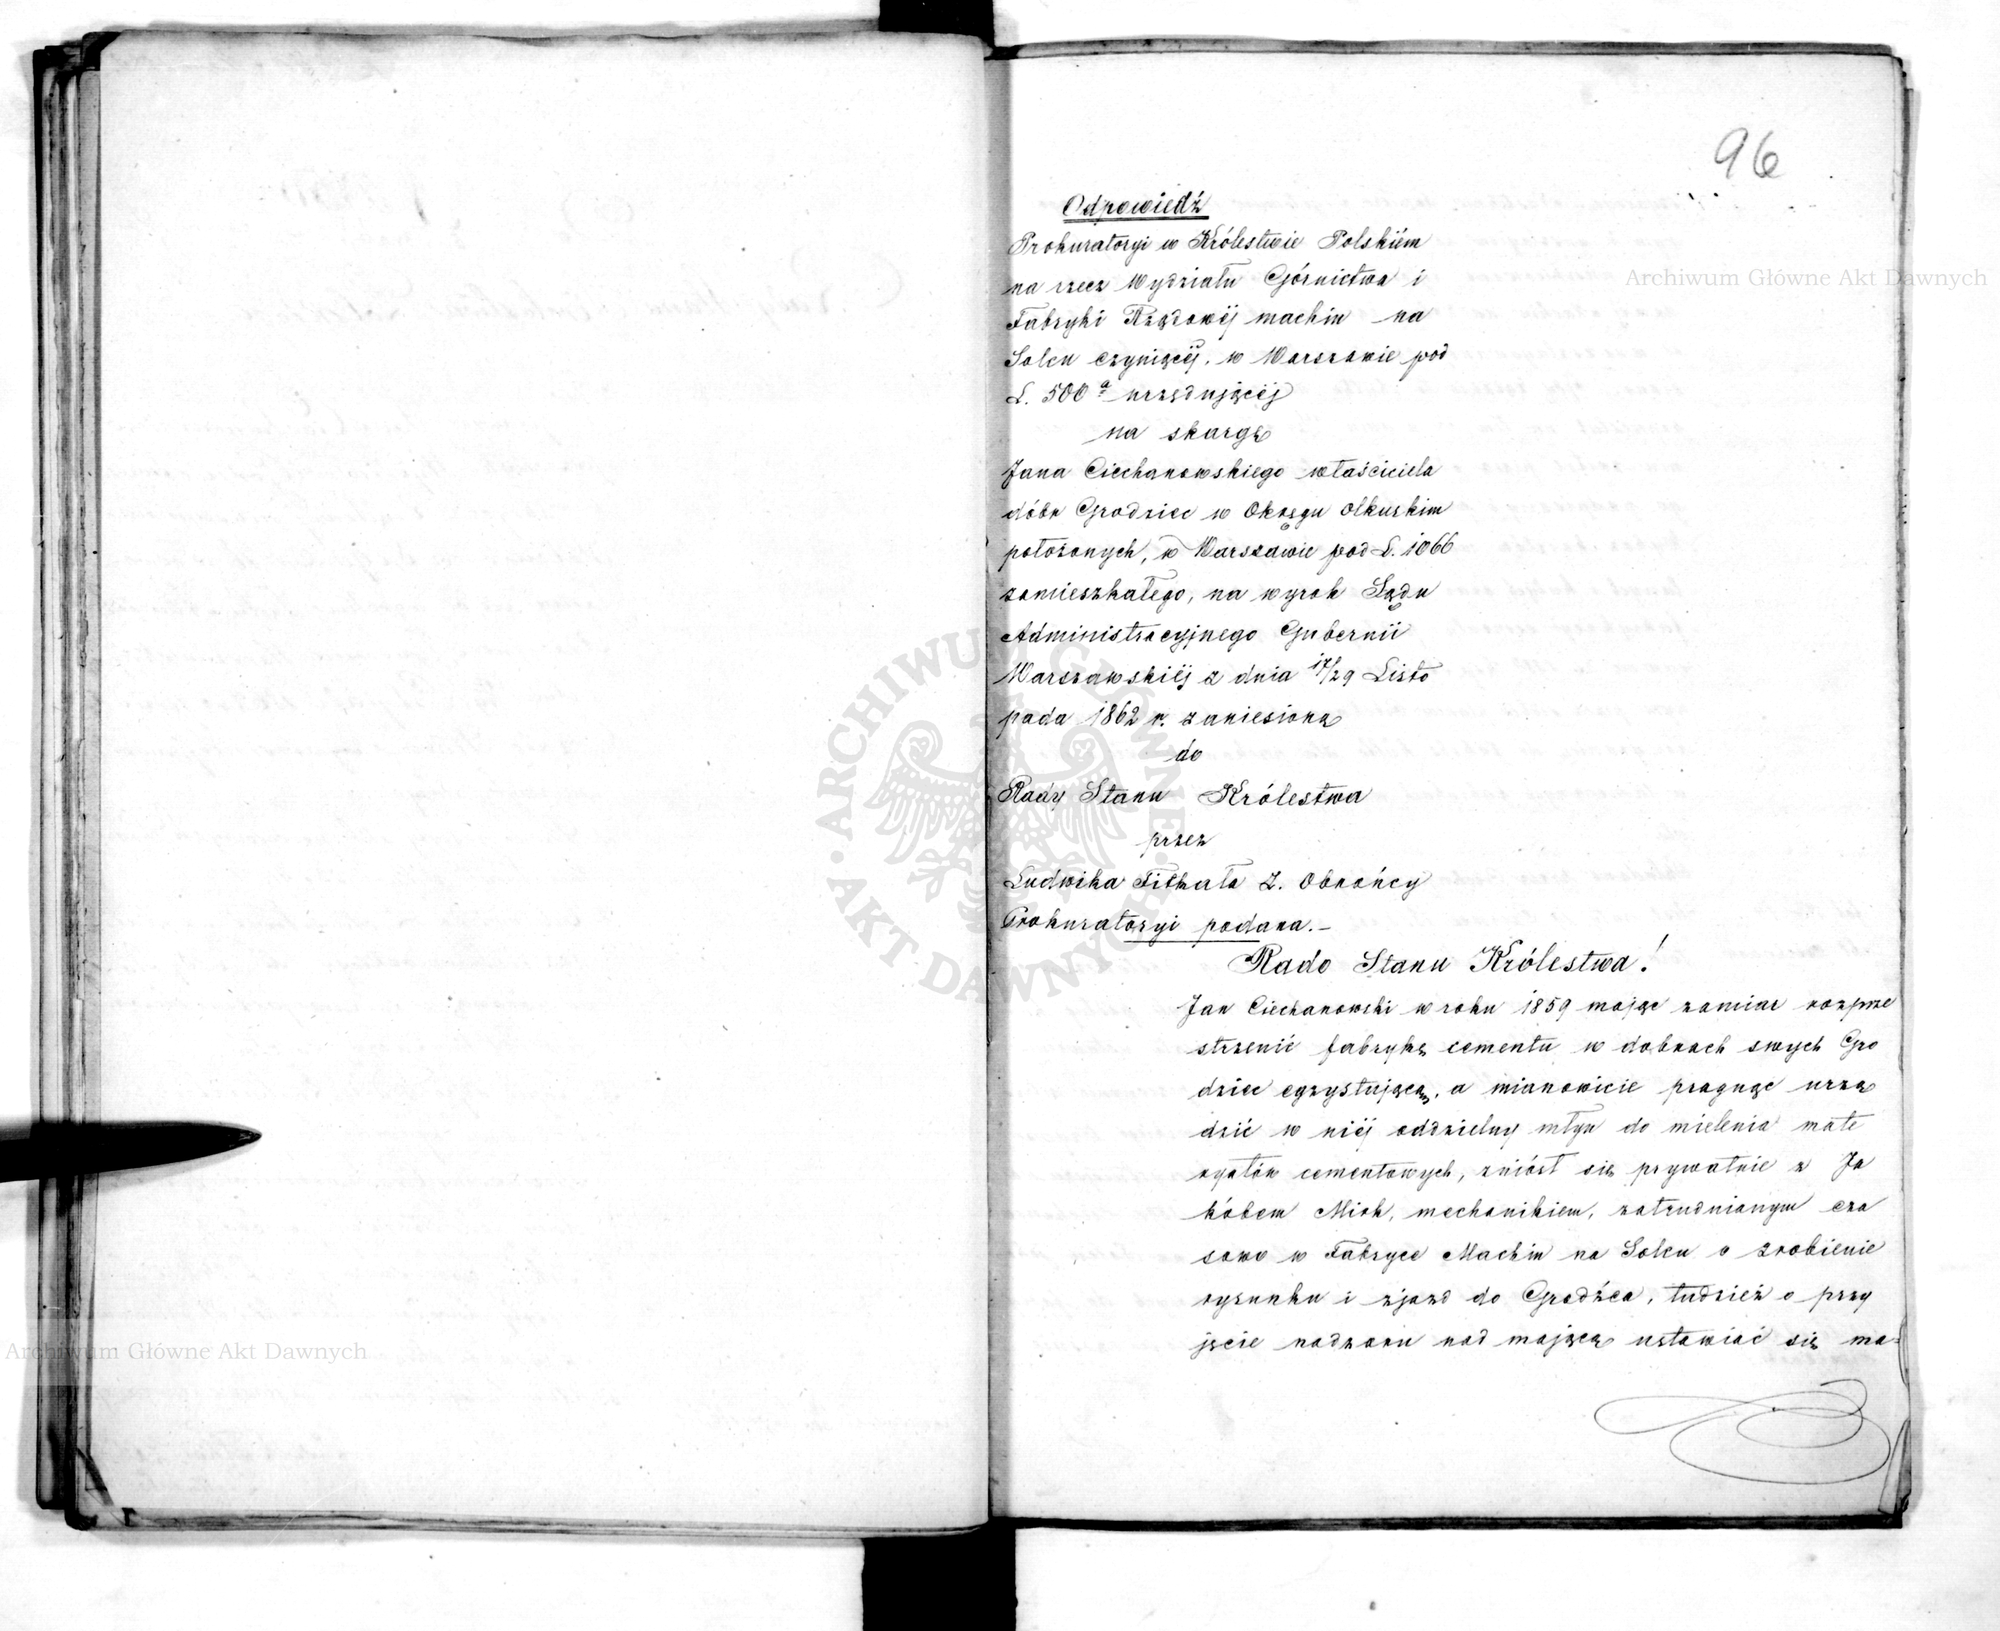 96
Odpowiedź
Prokuratoryi w Królestwie Polskiém
na rzecz Wydziału Górnictwa i
Fabryki Rządowéj machin na
Solcu czyniącéj, w Warszawie pod
L. 500 a urzędującéj
na skargę
Jana Ciechanowskiego właściciela
dóbr Grodziec w Okręgu Olkuskim
położonych, w Warszawie pod L. 1066
zamieszkałego, na wyrok Sądu
Administracyjnego Gubernii
Warszawskiéj z dnia 17/29 Listo
pada 1862 r. zaniesioną
do
Rady Stanu Królestwa
przez
Ludwika Z. Obrońcy
Prokuratoryi podana.–
Rado Stanu Królestwa!
Jan Ciechanowski w roku 1859 mając zamiar rozprze
strzenić fabrykę cementu w dobrach swych Gro
dziec egzystującą, a mianowicie pragnąc urzą
dzić w niéj oddzielny młyn do mielenia mate
ryałów cementowych, zniósł się prywatnie z Ja
kóbem Mick, mechanikiem, zatrudnianym cza
sowo w Fabryce Machin na Solcu o zrobienie
rysunku i zjazd do Grodźca, tudzież o przy
jęcie nadzoru nad mającą ustawiać się ma-
Archiwum Główne Akt Dawnych
Archiwum Główne Akt Dawnych
ARCHIWUM GŁÓWNE AKT DAWNYCH